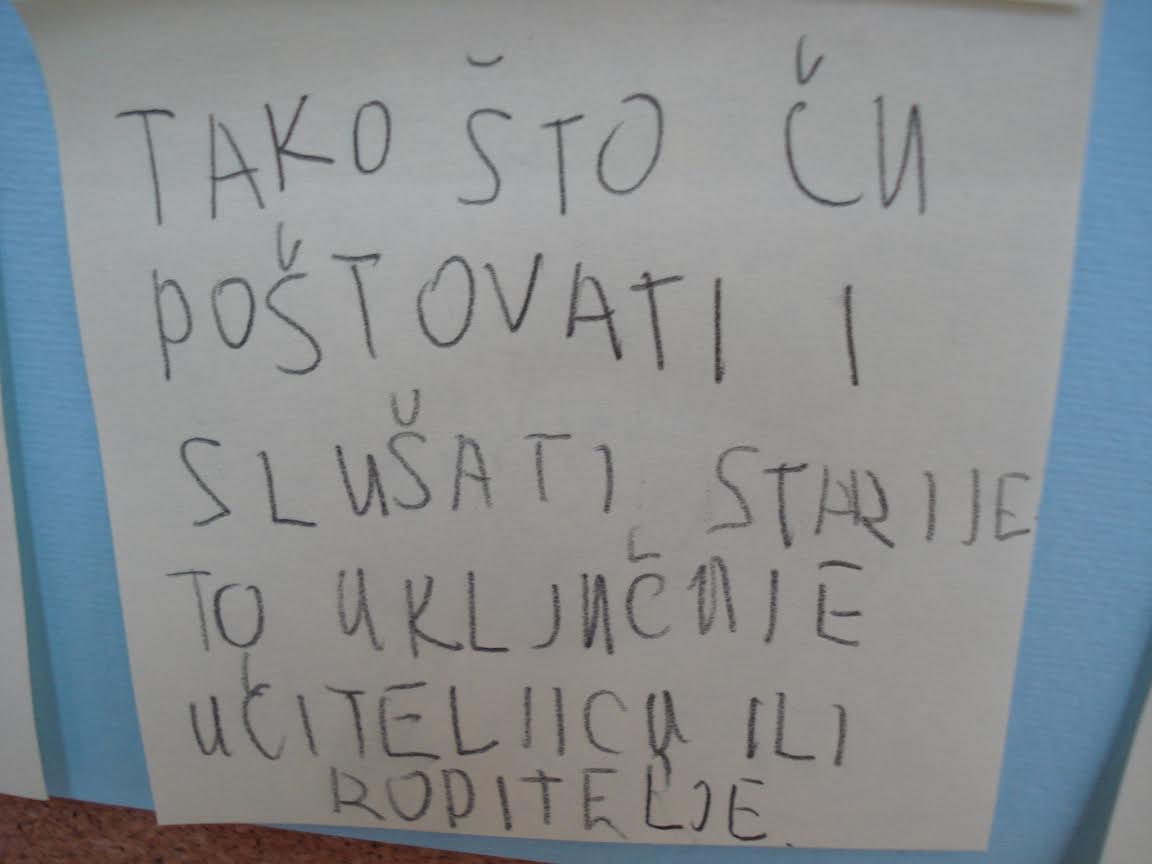 TAKO ŠTO ČU
POŠTOVATI I
SLUŠATI STARIJE
TO UKLJUČUJE
UČITELJICU ILI
RODITELJE.